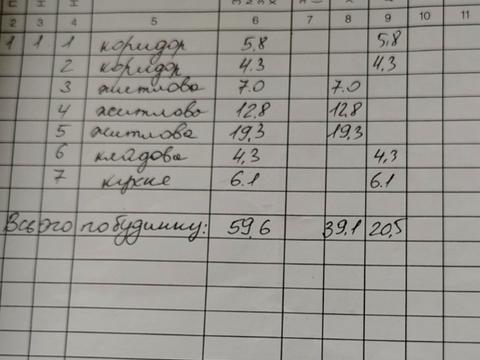 2 3 4 5 6 7 8 9 10 11
1 1 1 коридор 5,8 5,8
2 коридор 4.3 4.3
3 житлова 7.0 7.0
4 житлова 12,8 12,8
5 житлова 19,3 19,3
6 кладова 4,3 4,3
7 кухне 6.1 6.1
Всього по будинку: 59,6 39,1 20,5